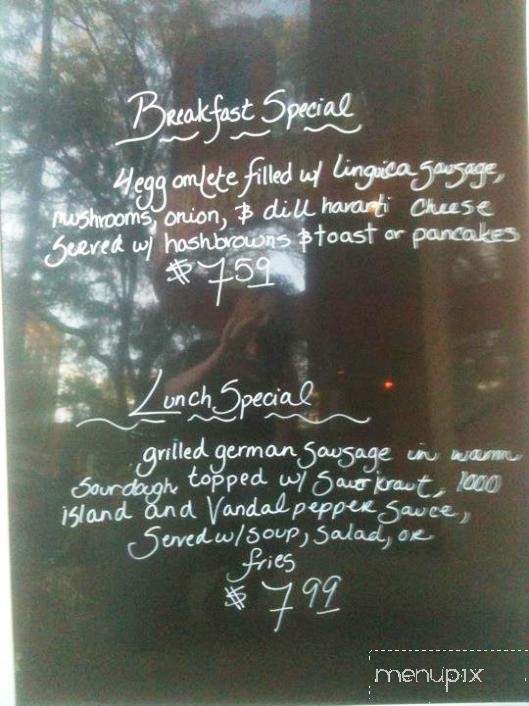 Breakfast Special
4 egg omlete filled w/ linguica sausage,
mushrooms, onion, & dill havarti cheese
Served w/ hashbrowns & toast or pancakes
$7.59
Lunch Special
grilled german sausage in warm
sourdough, topped w/ Saurkraut, 1000
island and Vandal pepper sauce,
Served w/ soup, salad, or
fries
$7.99
menupix